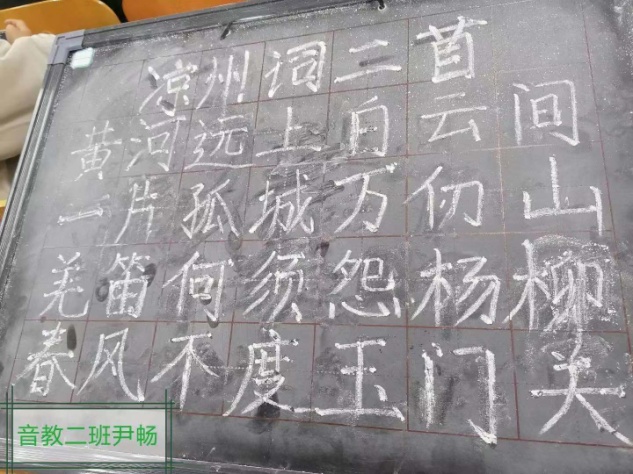 凉州词二首
黄河远上白云间
一片孤城万仞山
羌笛何须怨杨柳
春风不度玉门关
音教二班尹畅